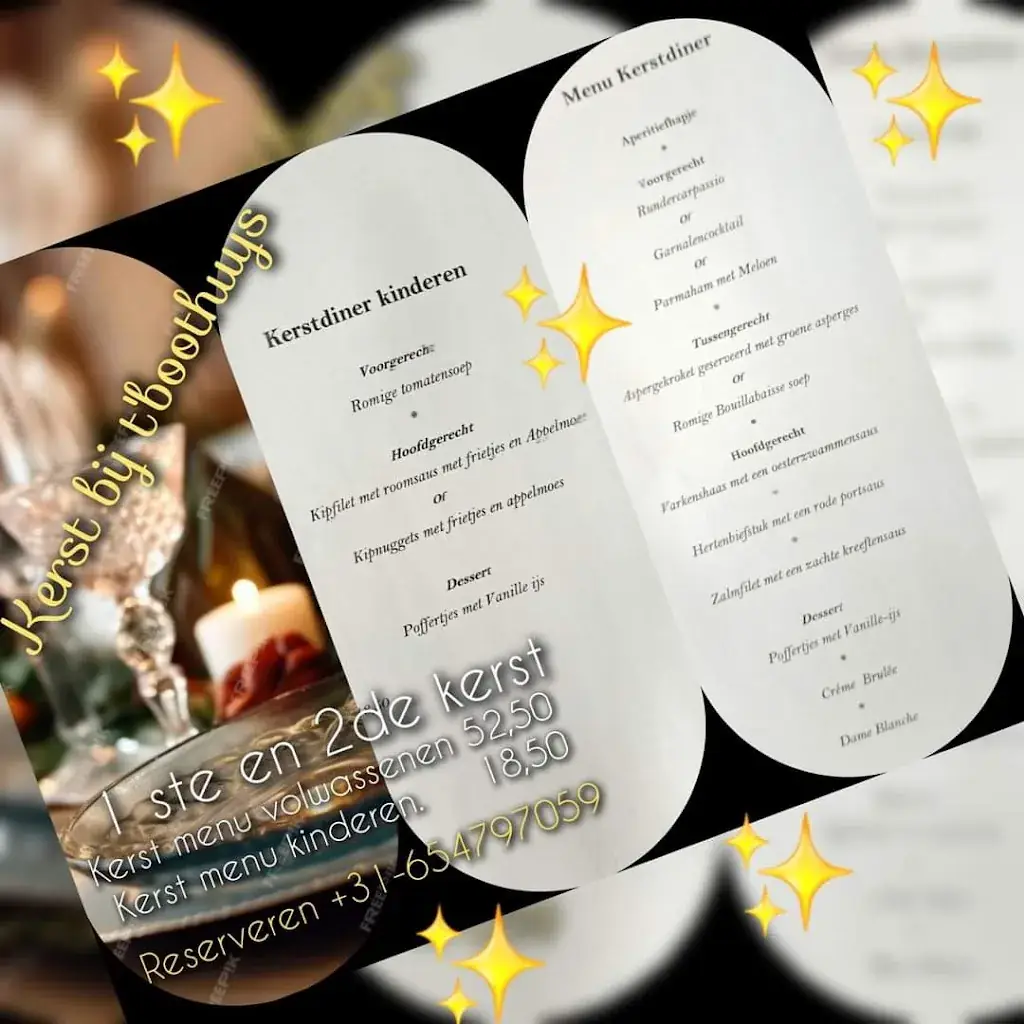 Kerst bij t'boothuys
Kerstdiner kinderen
Voorgerecht
Romige tomatensoep
Hoofdgerecht
Kipfilet met roomsaus met frietjes en Appelmoes
or
Kipnuggets met frietjes en appelmoes
Dessert
Poffertjes met Vanille ijs
Menu Kerstdiner
Aperitiefhapje
Voorgerecht
Rundercarpassio
or
Garnalencocktail
or
Parmaham met Meloen
Tussengerecht
Aspergekroket geserveerd met groene asperges
or
Romige Bouillabaisse soep
Hoofdgerecht
Varkenshaas met een oesterzwammensaus
Hertenbiefstuk met een rode portsaus
Zalmfilet met een zachte kreeftensaus
Dessert
Poffertjes met Vanille-ijs
Crème Brulée
Dame Blanche
1 ste en 2de kerst
Kerst menu volwassenen 52,50
Kerst menu kinderen. 18,50
Reserveren +31-654797059
FREEPIK